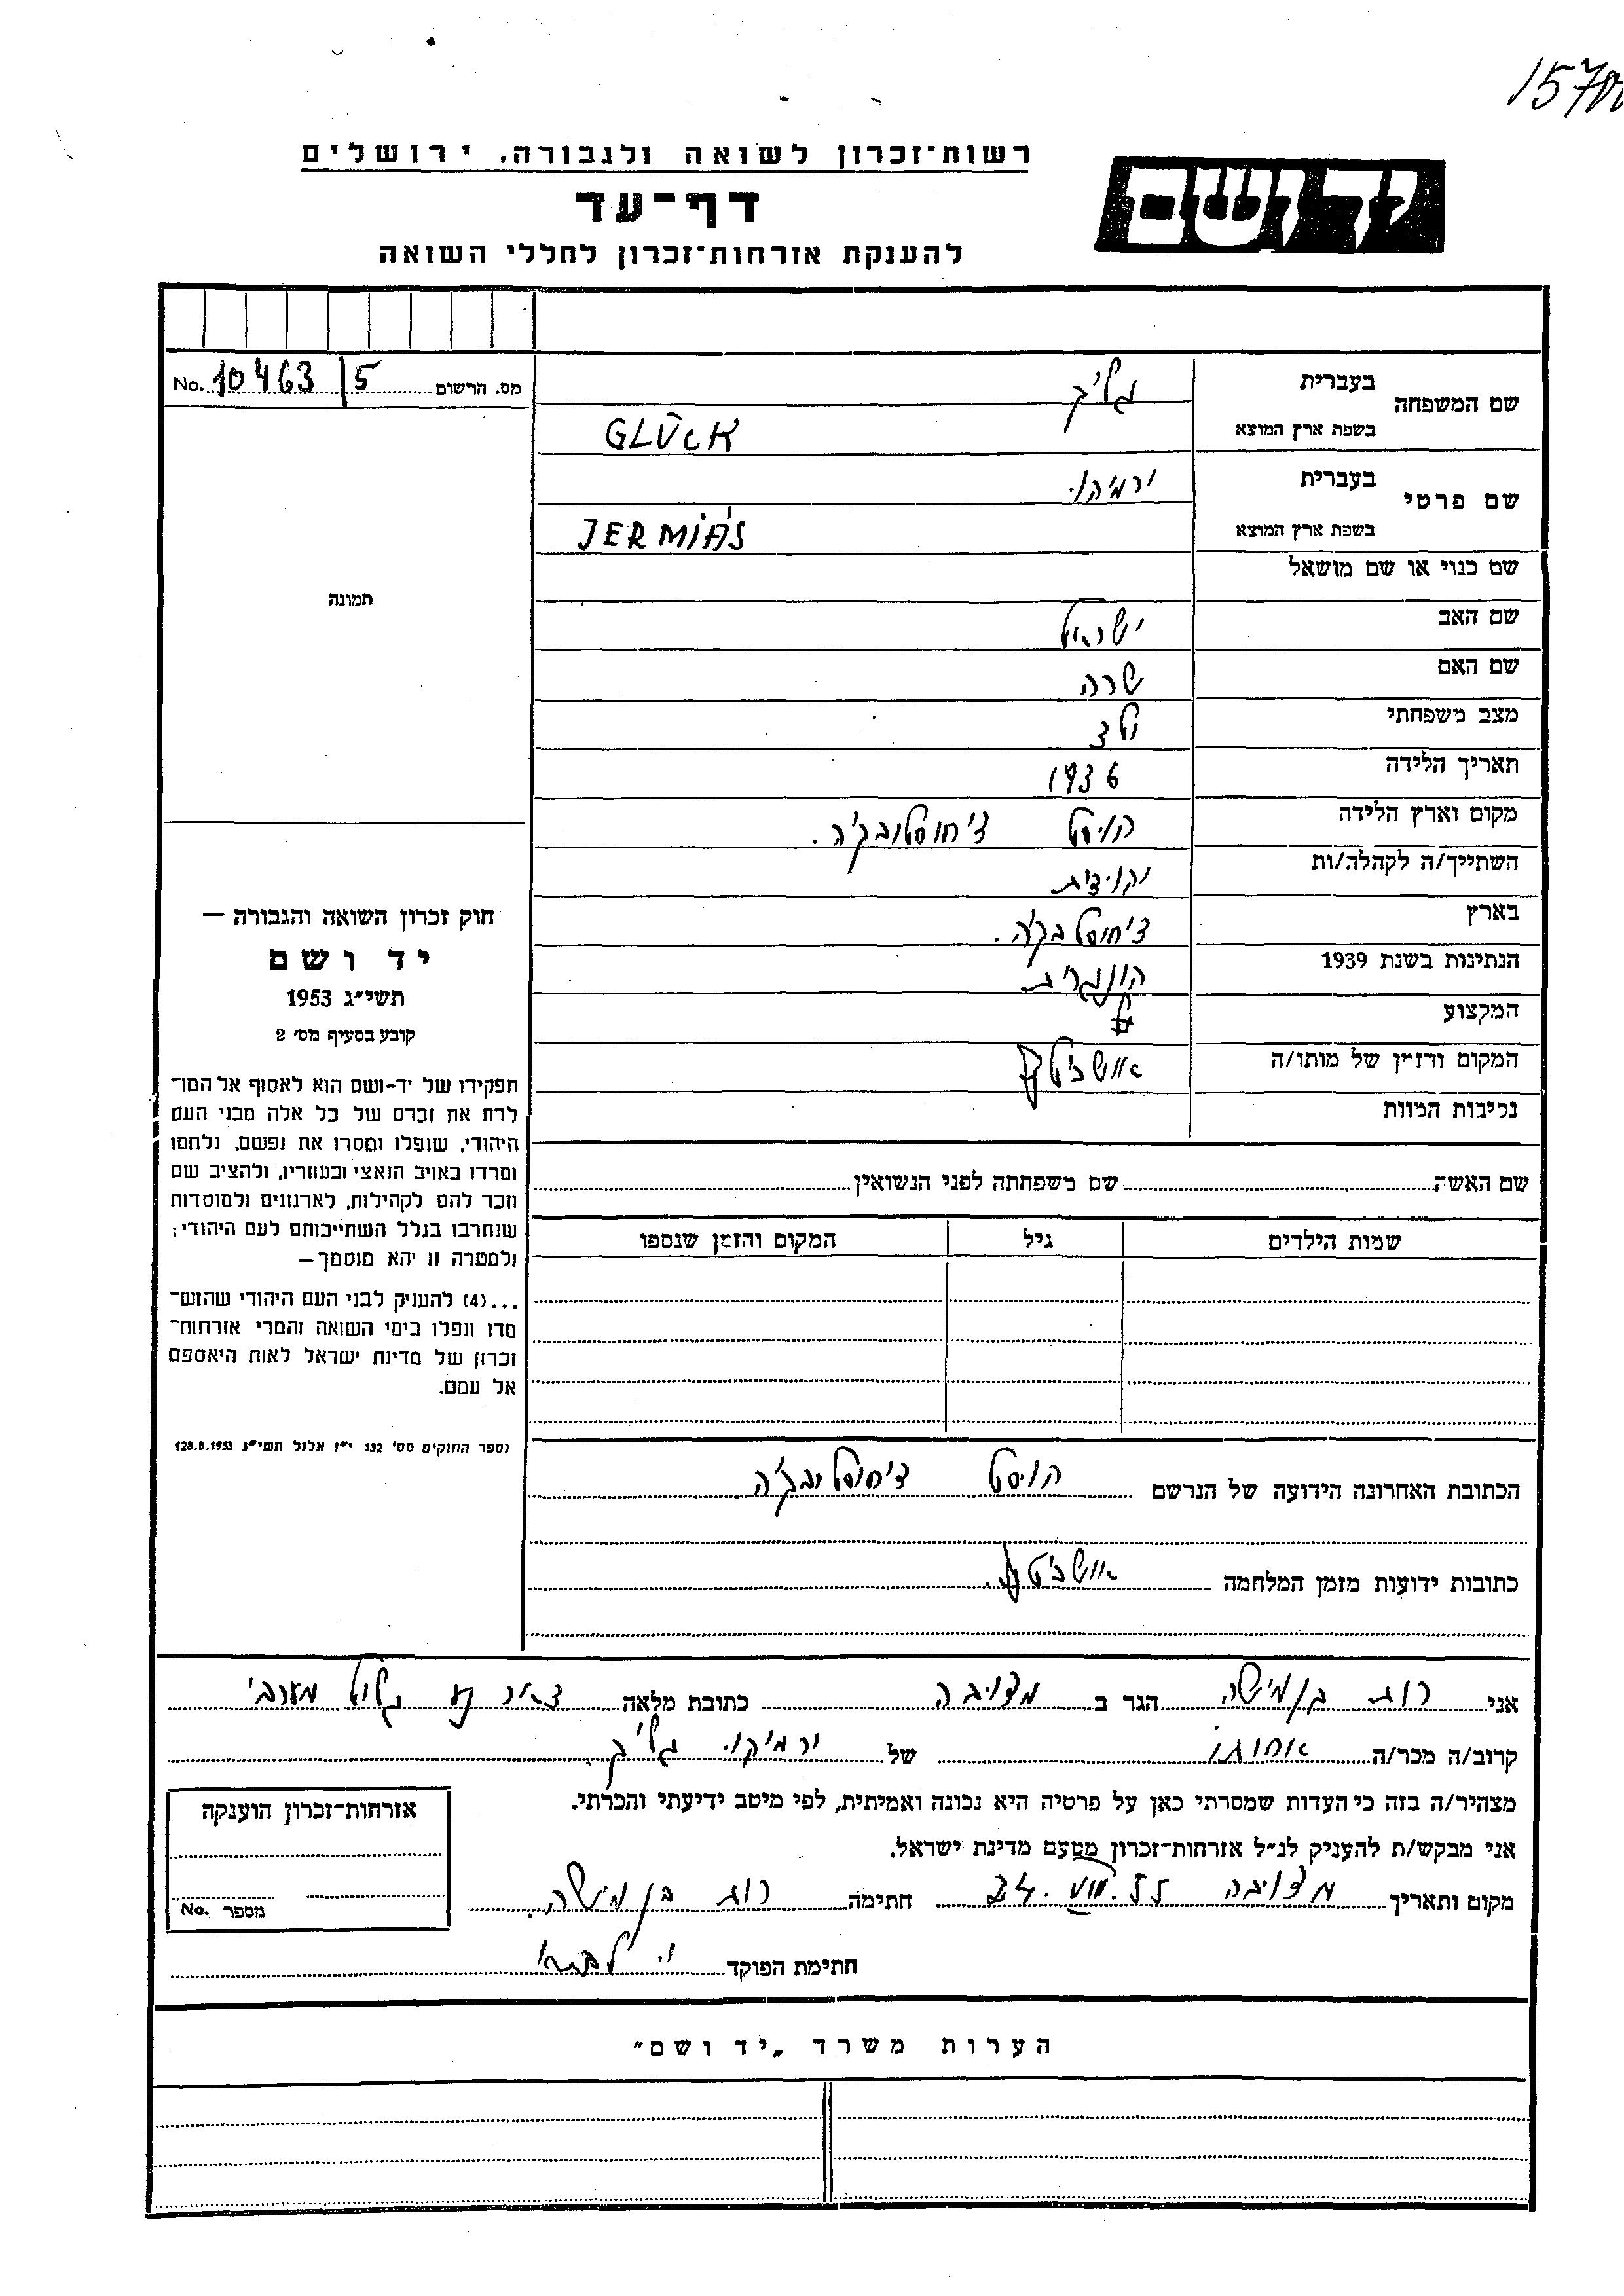 רשות־זכרון לשואה ולגבורה, ירושלים
יד ושם
דף־עד
להענקת אזרחות־זכרון לחללי השואה
מס. הרשום 10463/5 No.
שם המשפחה
בעברית גליק
בשפת ארץ המוצא GLÜCK
שם פרטי
בעברית ירמיהו.
בשפת ארץ המוצא JERMIÁS
שם כנוי או שם מושאל
שם האב ישראל
שם האם שרה
מצב משפחתי ילד
תאריך הלידה 1936
מקום וארץ הלידה הויסט צ'חוסלובקיה.
השתייך/ה לקהלה/ות יהודית
בארץ צ'חוסלובקיה.
הנתינות בשנת 1939 הונגרית
המקצוע
המקום והזמן של מותו/ה אושביץ
נסיבות המוות
שם האשה שם משפחתה לפני הנשואין
שמות הילדים גיל המקום והזמן שנספו
תמונה
חוק זכרון השואה והגבורה —
יד ושם
תשי״ג 1953
קובע בסעיף מס' 2
תפקידו של יד-ושם הוא לאסוף אל המו־
לדת את זכרם של כל אלה מבני העם
היהודי, שנפלו ומסרו את נפשם, נלחמו
ומרדו באויב הנאצי ובעוזריו, ולהציב שם
וזכר להם לקהילות, לארגונים ולמוסדות
שנחרבו בגלל השתייכותם לעם היהודי;
ולמטרה זו יהא מוסמך—
...(4) להעניק לבני העם היהודי שהוש־
מדו ונפלו בימי השואה והמרי אזרחות־
זכרון של מדינת ישראל לאות היאספם
אל עמם.
(ספר החוקים מס' 132 י״ז אלול תשי״ג 28.8.1953)
הכתובת האחרונה הידועה של הנרשם הויסט צ'חוסלובקיה
כתובות ידועות מזמן המלחמה אושביץ.
אני רות בן מישה הגר ב מצובה כתובת מלאה דאר נע גליל מערבי
קרוב/ה מכר/ה אחותו של ירמיהו גליק.
מצהיר/ה בזה כי העדות שמסרתי כאן על פרטיה היא נכונה ואמיתית, לפי מיטב ידיעתי והכרתי.
אני מבקש/ת להעניק לנ״ל אזרחות־זכרון מטעם מדינת ישראל.
מקום ותאריך מצובה 24.VIII.55 חתימה רות בן מישה.
חתימת הפוקד
אזרחות־זכרון הוענקה
מספר No.
הערות משרד „יד ושם״